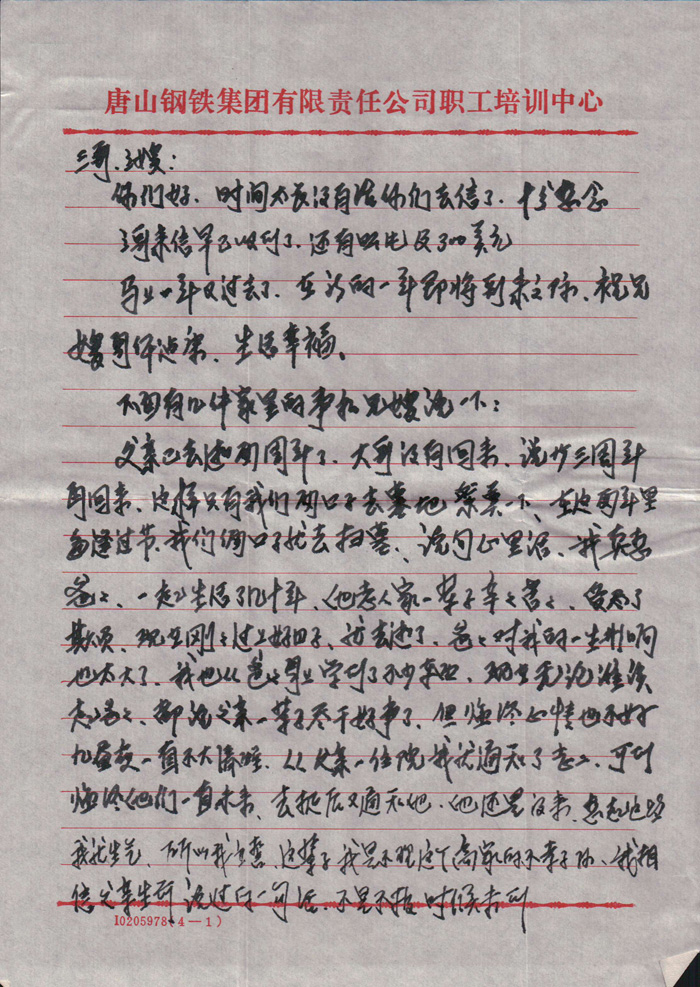 唐山钢铁集团有限责任公司职工培训中心
三哥、嫂:
你们好、时间太长没有给你们去信了、十分想念
来信早已收到了、还有照片及300美元
马上一年又过去了、在新的一年即将到来之际、祝兄
嫂身体健康、生活幸福。
下面有几件家里的事和兄嫂说一下:
父亲已去世两周年了、大哥没有回来、说步三周年
再回来、这样只有我们两口子去墓地祭奠一下、在这两年里
每逢过节、我们俩口子就去扫墓、说句心里话、我真想
爸爸、一起生活了几十年、他老人家一辈子辛辛苦苦、受尽了
欺负、现在刚刚过上好日子、就去世了、爸爸对我的一生影响
也太大了、我也从爸爸身上学到了不少东西、现在无论谁谈
起爸爸、都说父亲一辈子尽干好事了、但 心情也不好
一直不大 、从父亲一住院我就通知了 、可
他们一直未来、去世后又通知他、他还是没来、想起这些
我就生气、所以我 、这辈子我是不理这个高家的不孝子孙、我相
信父亲生前说过的一句话、不是不报时候未到
10205978(4—1)